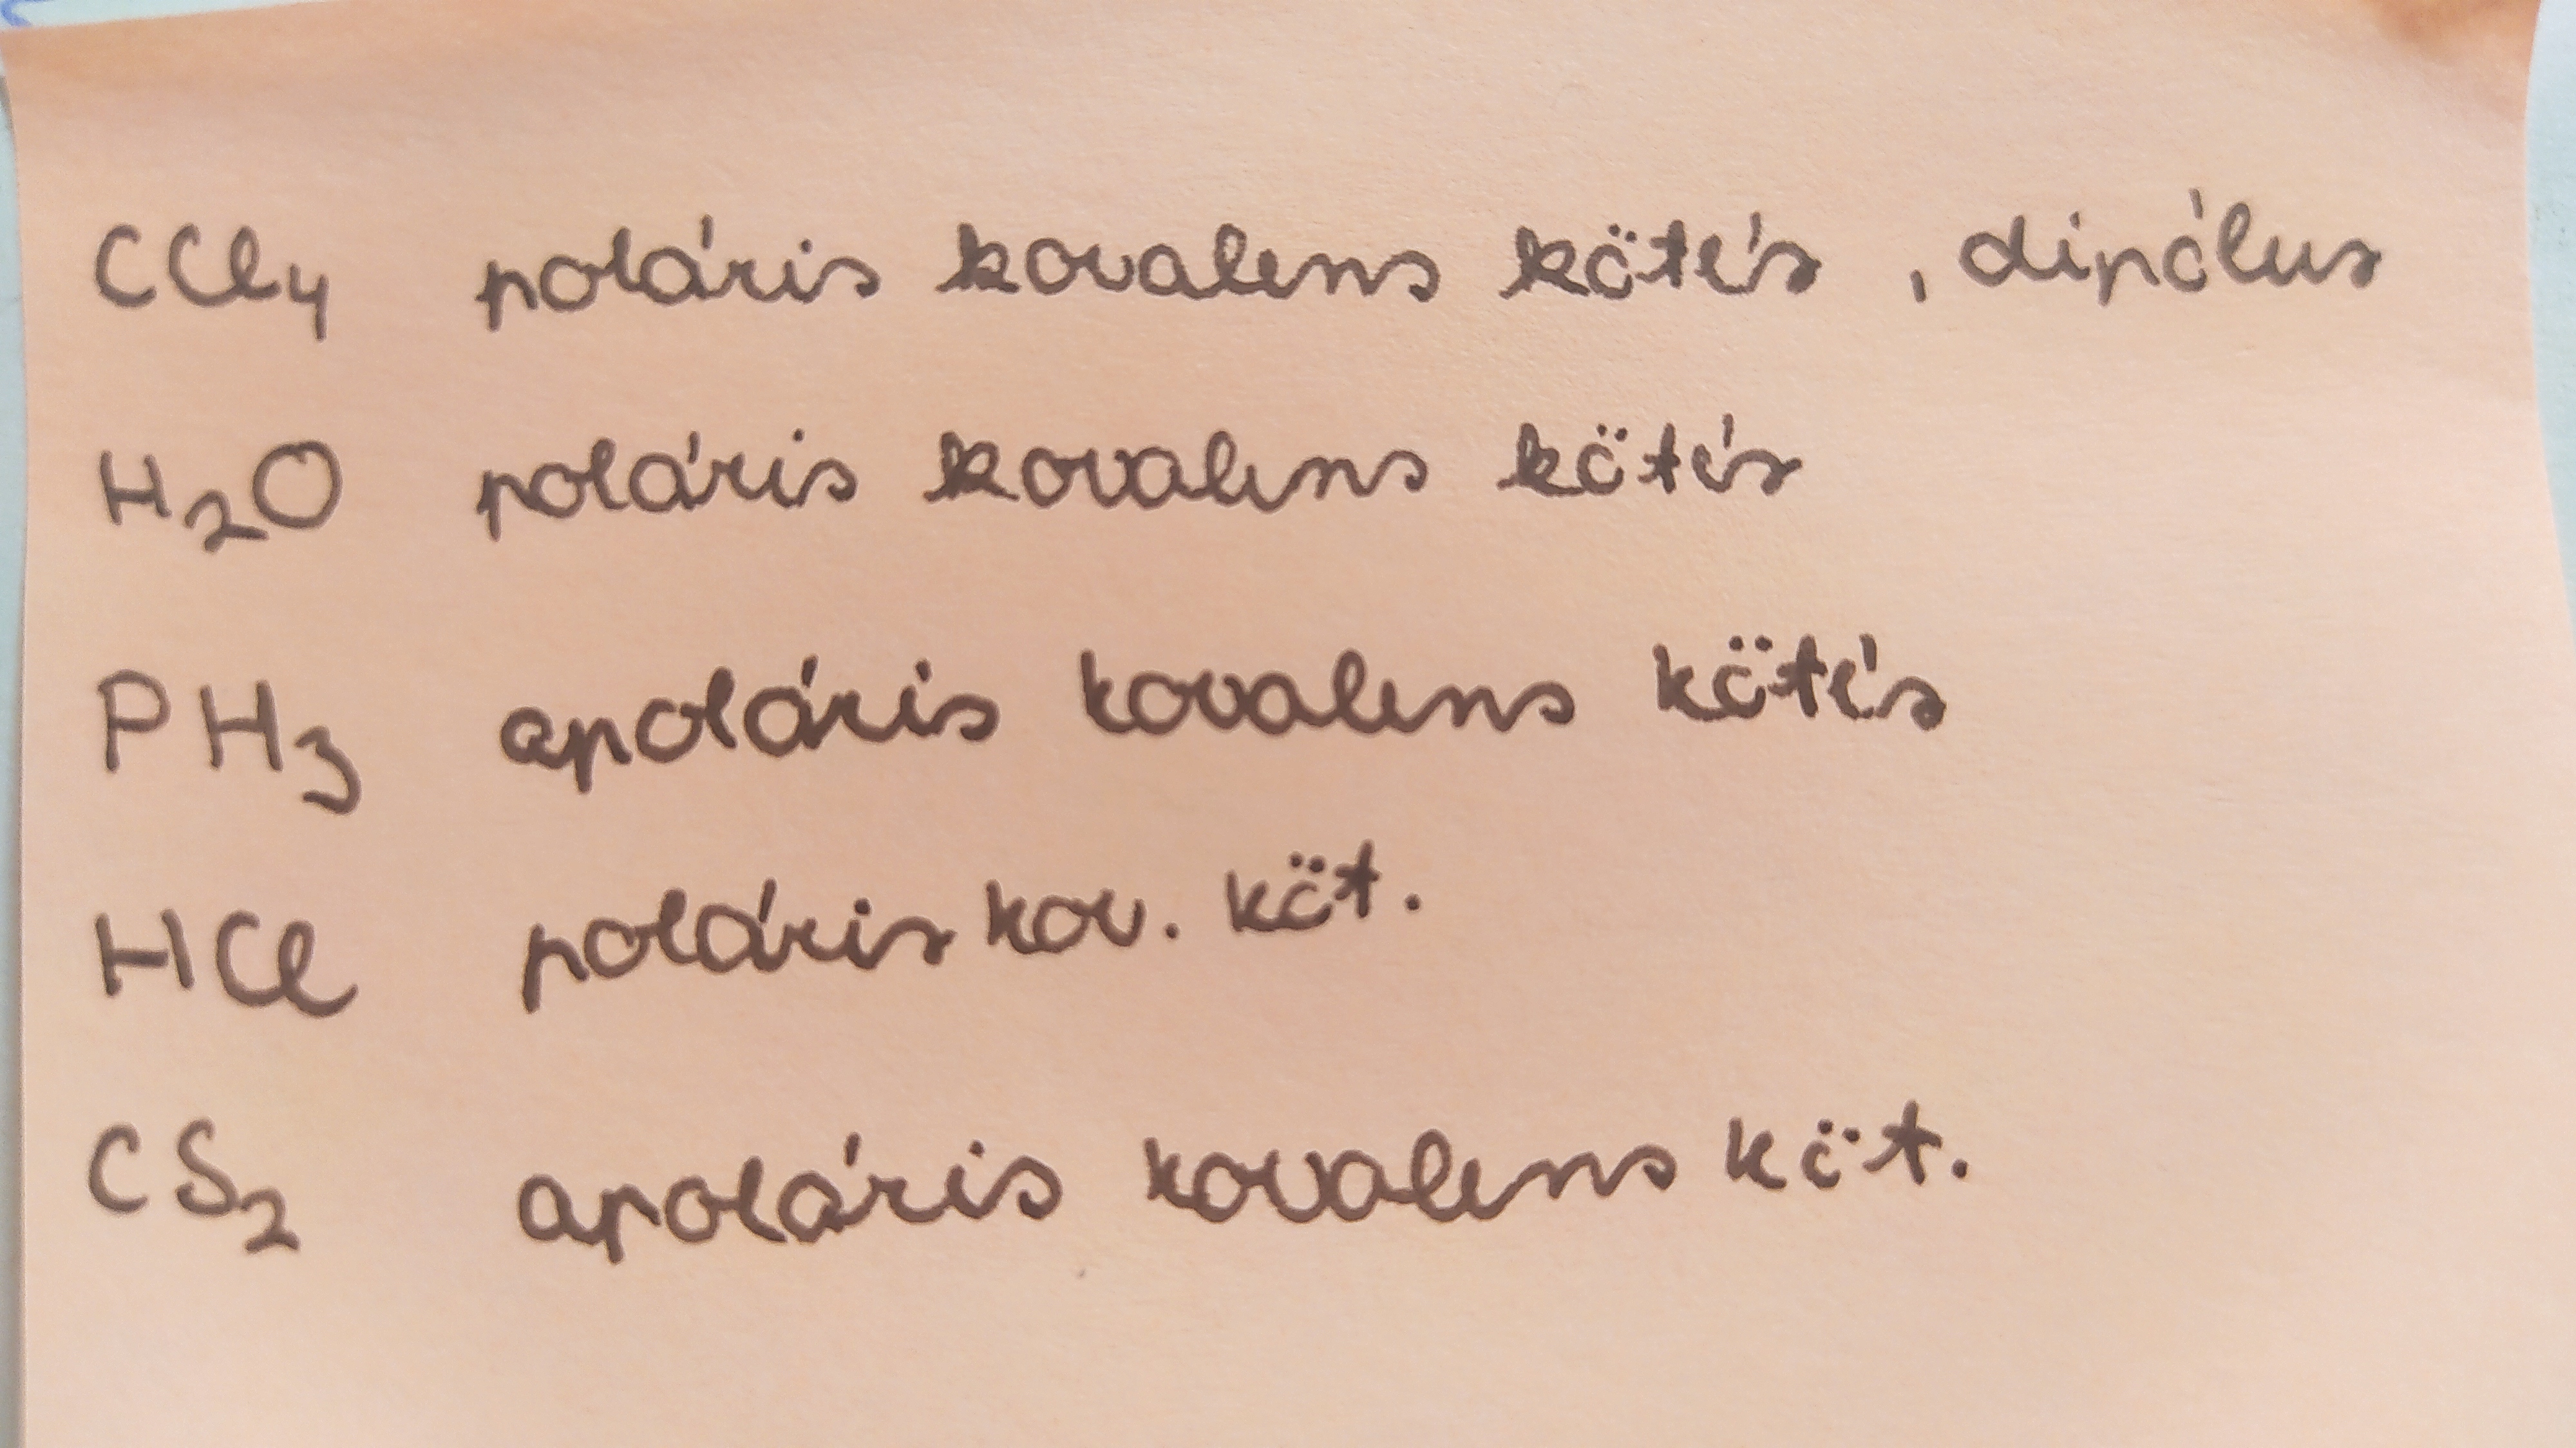 CCl₄ poláris kovalens kötés, dipólus
H₂O poláris kovalens kötés
PH₃ apoláris kovalens kötés
HCl poláris kov. köt.
CS₂ apoláris kovalens köt.